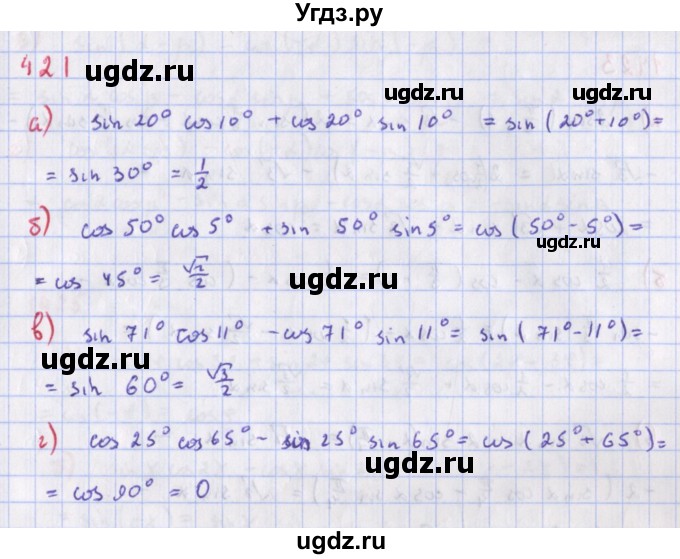 Угдз.ру
421
ugdz.ru
ugdz.ru
а) sin 20° cos 10° + cos 20° sin 10° = sin (20°+10°) =
= sin 30° = 1/2
б) cos 50° cos 5° + sin 50° sin 5° = cos (50° - 5°) =
ugdz.ru
= cos 45° = √2/2
ugdz.ru
в) sin 71° cos 11° - cos 71° sin 11° = sin (71° - 11°) =
ugdz.ru
= sin 60° = √3/2
ugdz.ru
г) cos 25° cos 65° - sin 25° sin 65° = cos (25° + 65°) =
ugdz.ru
= cos 90° = 0
ugdz.ru